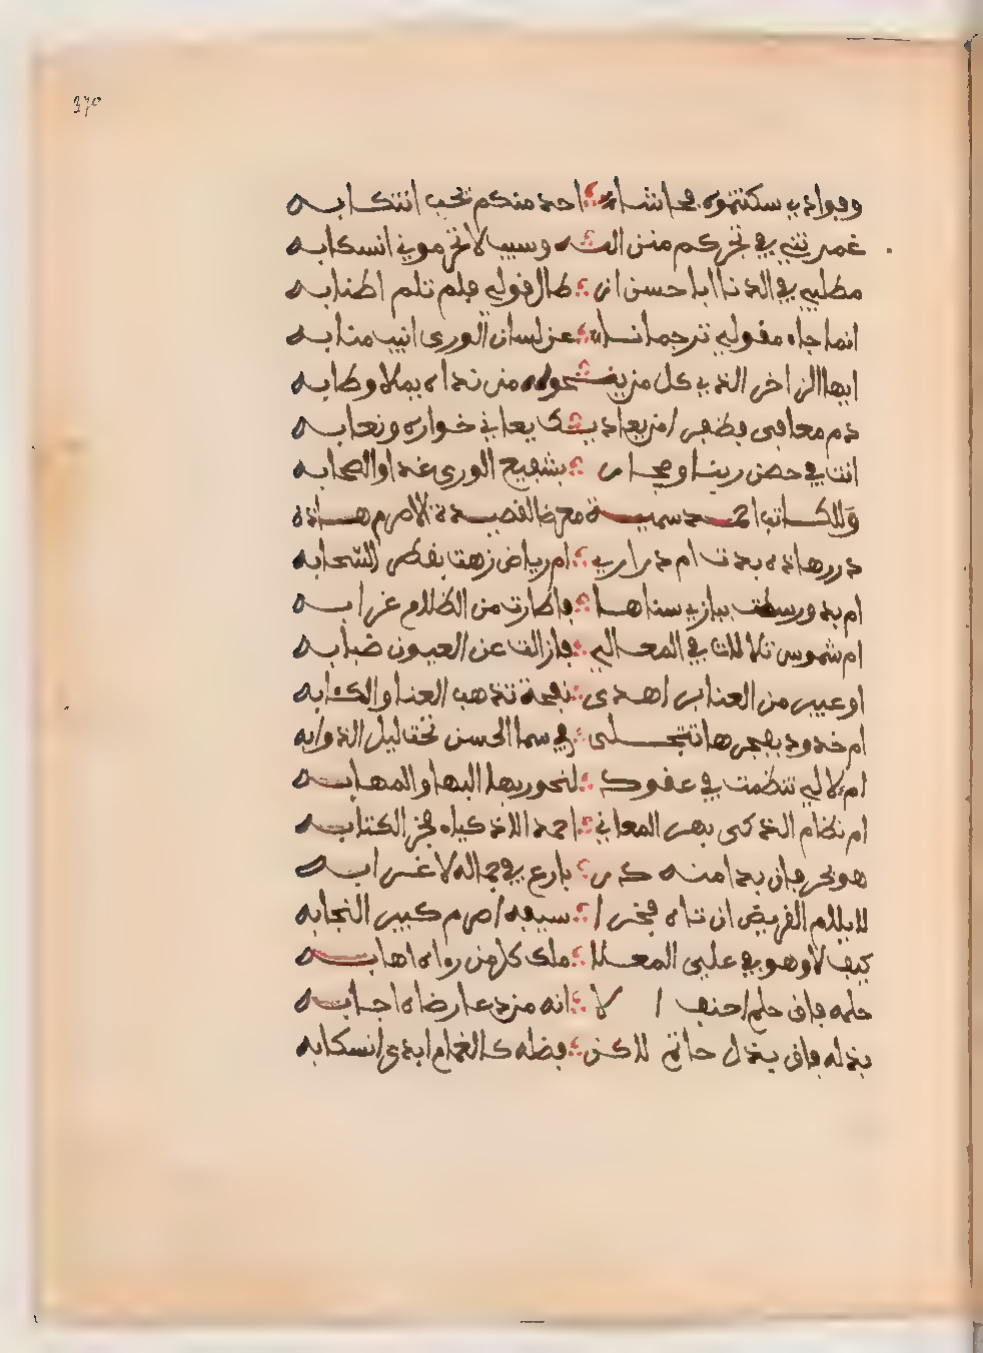 370
وفؤادي سكنتموه فحاشا ؛ احد منكم تحب انتكابه
غمرتني في نحركم منن الله وسيب لا تحرموني انسكابه
مطلبي في الدنا ابا حسن ان ؛ طال قولي فلم تلم اطنابه
انما جاه مقولي ترجمانا ؛ عن لسان الورى انيب منابه
ايها الزاخر الذي كل من ينحوه من نداه يملا وطابه
دم معافى بظفر من يعاديك يعاني خواره ونعابه
انت في حصن ربنا وحجاه ؛ بشفيع الورى غدا والصحابه
وللكاتب احمد سميه معرضا لقصيدة الاصرم هاذه
درر هاذه بدت ام دراري ؛ ام رياض زهت بقطر السحابه
ام بدور سطت ببازي سناها ؛ فاطارت من الظلام غرابه
ام شموس تلالات في المعالي ؛ فازالت عن العيون ضبابه
او عبير من العنابر اهدى ؛ نفحة تذهب العنا والكئابه
ام خدود بفجرها تتجلى ؛ في سما الحسن تحت ليل الذوابه
ام لالي تنظمت في عقود ؛ لنحور بها البها والمهابه
ام نظام الذ كى بهر المعاني ؛ احمد الاذكياه فخر الكتابه
هو بحر فان بدا منه در ؛ بارع في جماله لا غرابه
لا يلام القريض ان تاه فخرا ؛ سيبه اصرم كبير النجابه
كيف لا وهو في على المعلا ؛ ملك كل من رواه اهابه
حلمه فاق حلم احنف الا ؛ انه من دعا رضاه اجابه
بذله فاق بذل حاتم لاكن ؛ فضله كالغمام ابدى انسكابه